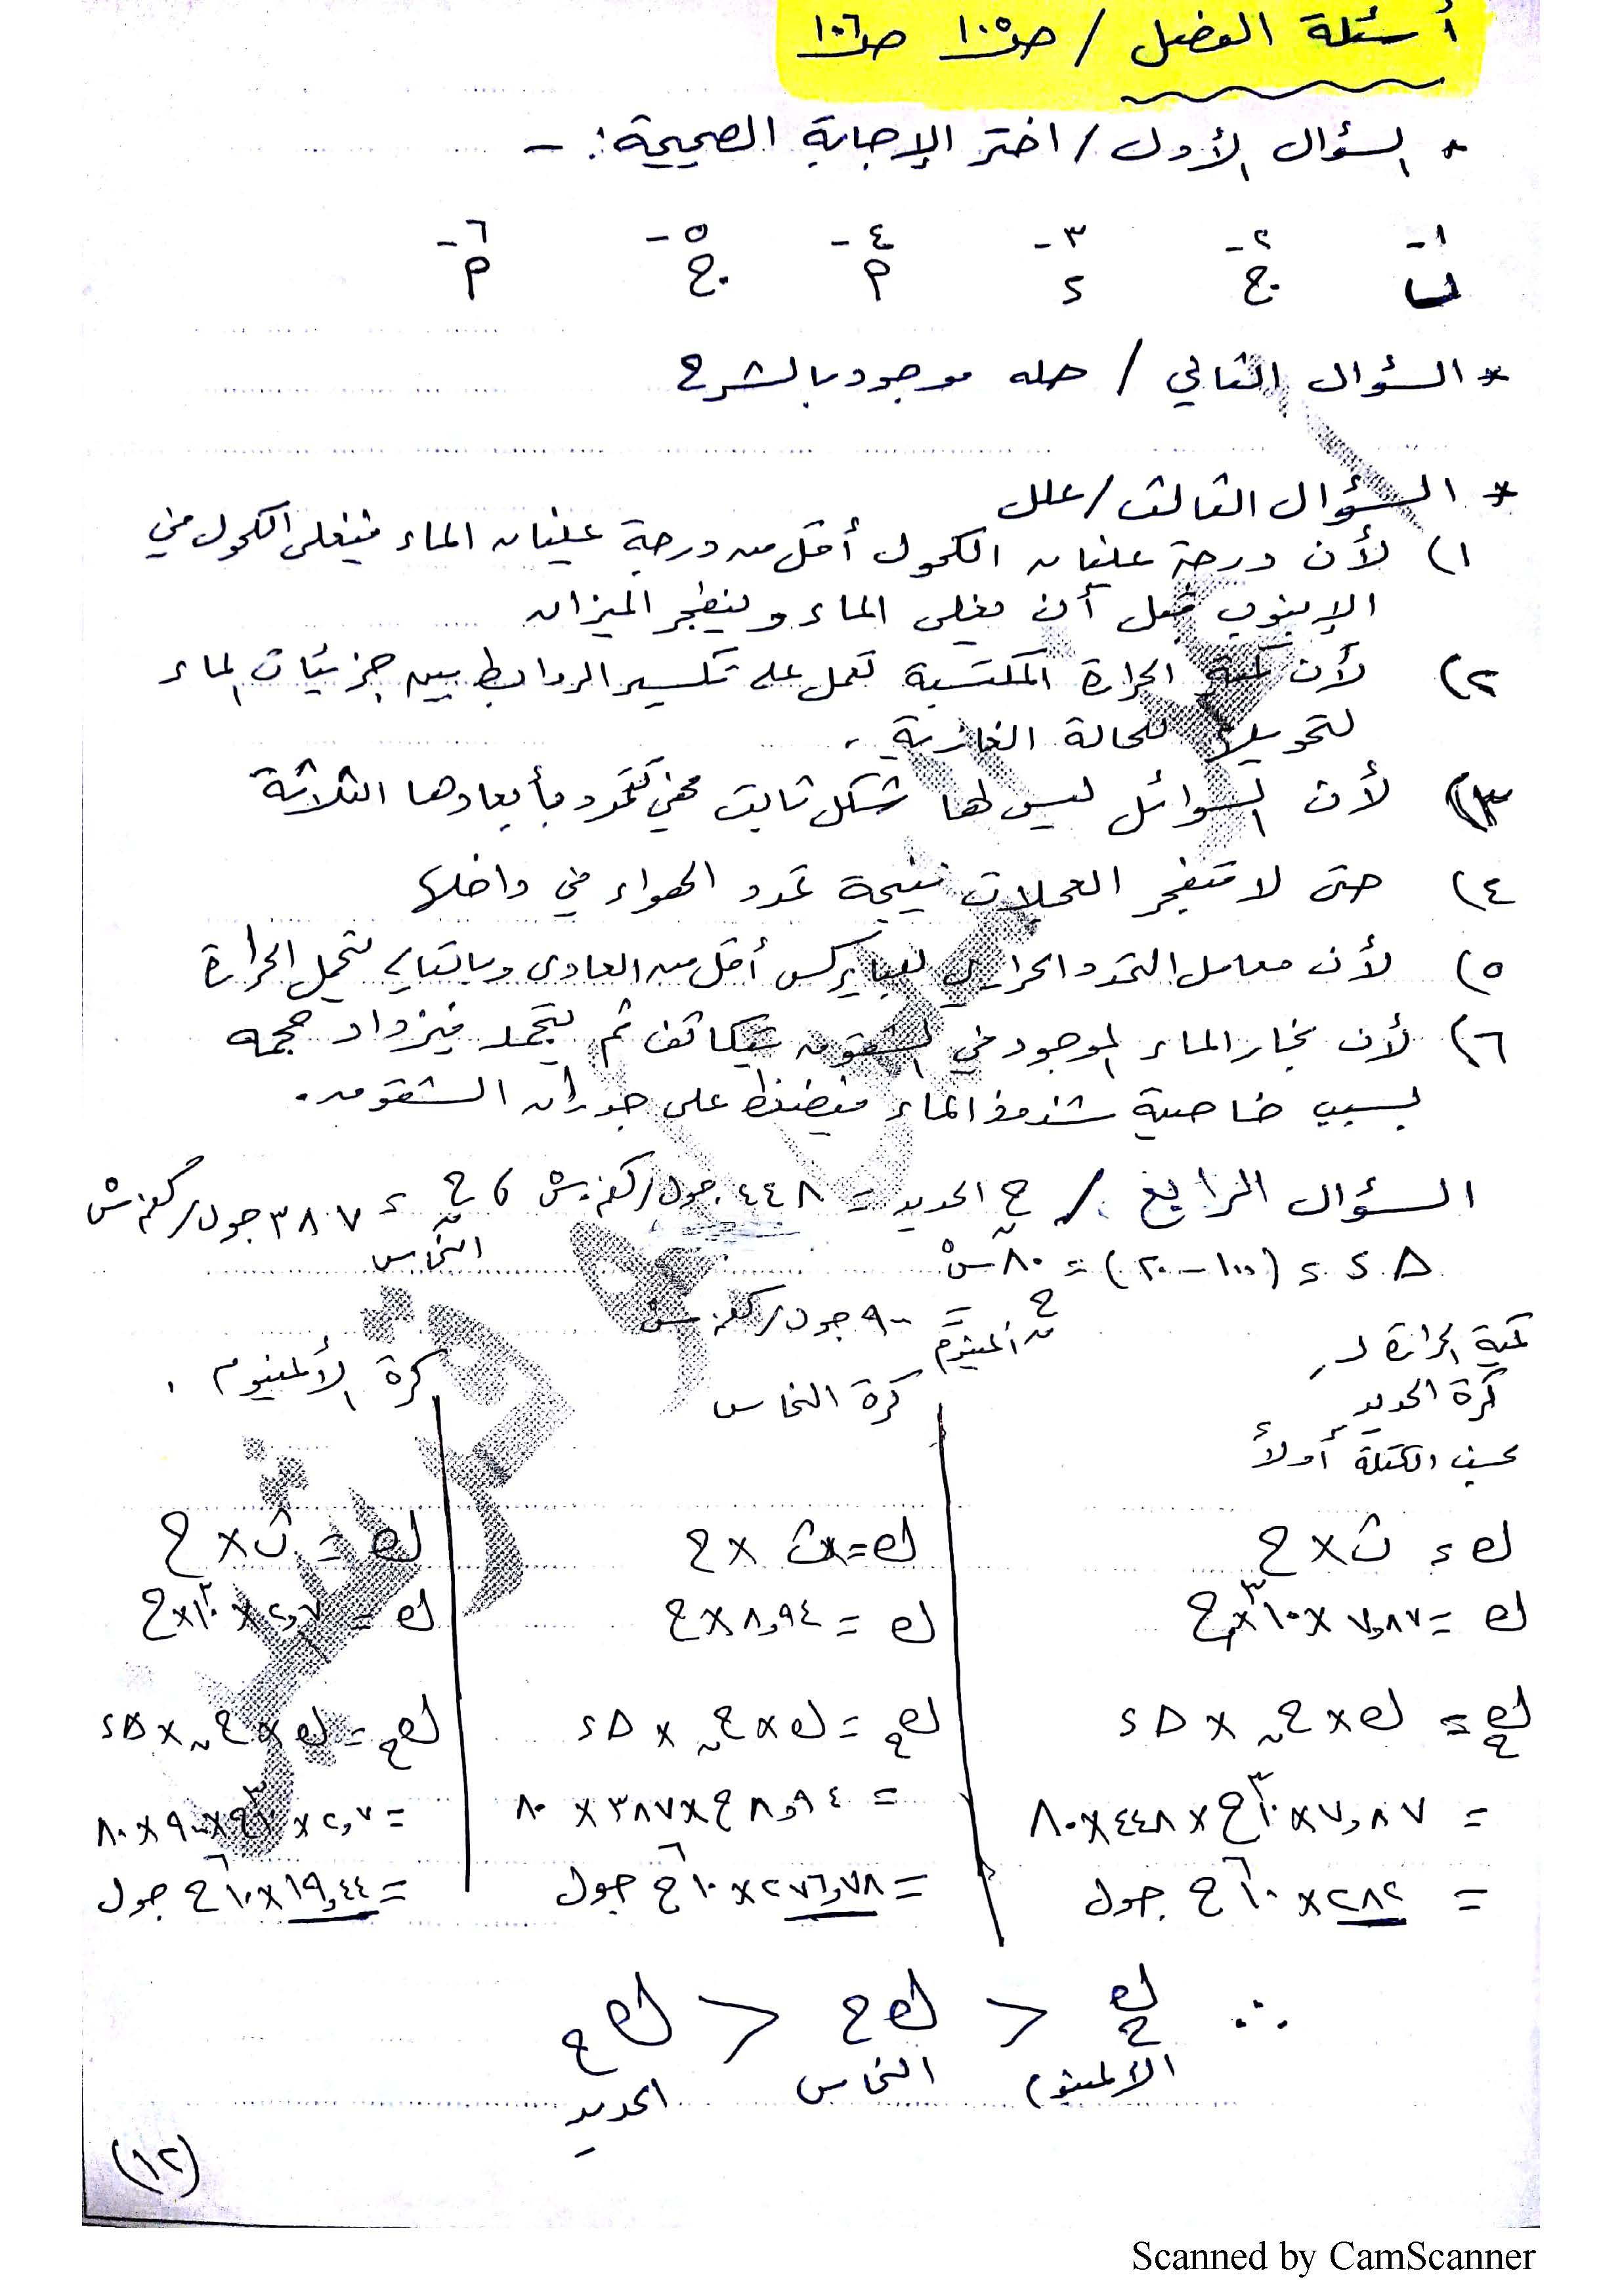 أسئلة الفصل / ص١٠٥ ص١٠٦
* السؤال الأول / اختر الإجابة الصحيحة: -
١- ٢- ٣- ٤- ٥- ٦-
ب ج د م ج م
* السؤال الثاني / حله موجود بالشرح
* السؤال الثالث / علل
١) لأن درجة غليان الكحول أقل من درجة غليان الماء فيغلي الكحول في
الإنبوب قبل أن يغلي الماء وينفجر الميزان
٢) لأن كمية الحرارة المكتسبة تعمل على تكسير الروابط بين جزيئات الماء
لتحويلها للحالة الغازية .
٣) لأن السوائل ليس لها شكل ثابت فهي تتمدد بأبعادها الثلاثة
٤) حتى لا تنفجر العجلات نتيجة تمدد الهواء في داخلها
٥) لأن معامل التمدد الحراري للبايركس أقل من العادي وبالتالي تتحمل الحرارة
٦) لأن بخار الماء الموجود في الشقوق يتكاثف ثم يتجمد فيزداد حجمه
بسبب خاصية شذوذ الماء فيضغط على جدران الشقوق .
السؤال الرابع / ح ن الحديد = ٤٤٨ جول/كغم.س ، ح ن النحاس = ٣٨٧ جول/كغم.س
Δ د = (١٠٠ - ٢٠) = ٨٠ س°
ح ن المنيوم = ٩٠٠ جول/كغم.س
كمية الحرارة لـ
كرة الحديد
نحسب الكتلة أولاً
ك = ث × ح
ك = ٧,٨٧ × ١٠^٣ × ح
ك ح = ك × ح ن × Δ د
= ٧,٨٧ × ١٠^٣ ح × ٤٤٨ × ٨٠
= ٢٨٢ × ١٠^٦ ح جول
كرة النحاس
ك = ث × ح
ك = ٨,٩٤ × ح
ك ح = ك × ح ن × Δ د
= ٨,٩٤ ح × ٣٨٧ × ٨٠
= ٢٧٦,٧٨ × ١٠^٦ ح جول
كرة الألمنيوم .
ك = ث × ح
ك = ٢,٧ × ١٠^٣ × ح
ك ح = ك × ح ن × Δ د
= ٢,٧ × ١٠^٣ ح × ٩٠٠ × ٨٠
= ١٩,٤٤ × ١٠^٦ ح جول
∴ ك ح > ك ح > ك ح
الالمنيوم النحاس الحديد
(١٢)
Scanned by CamScanner